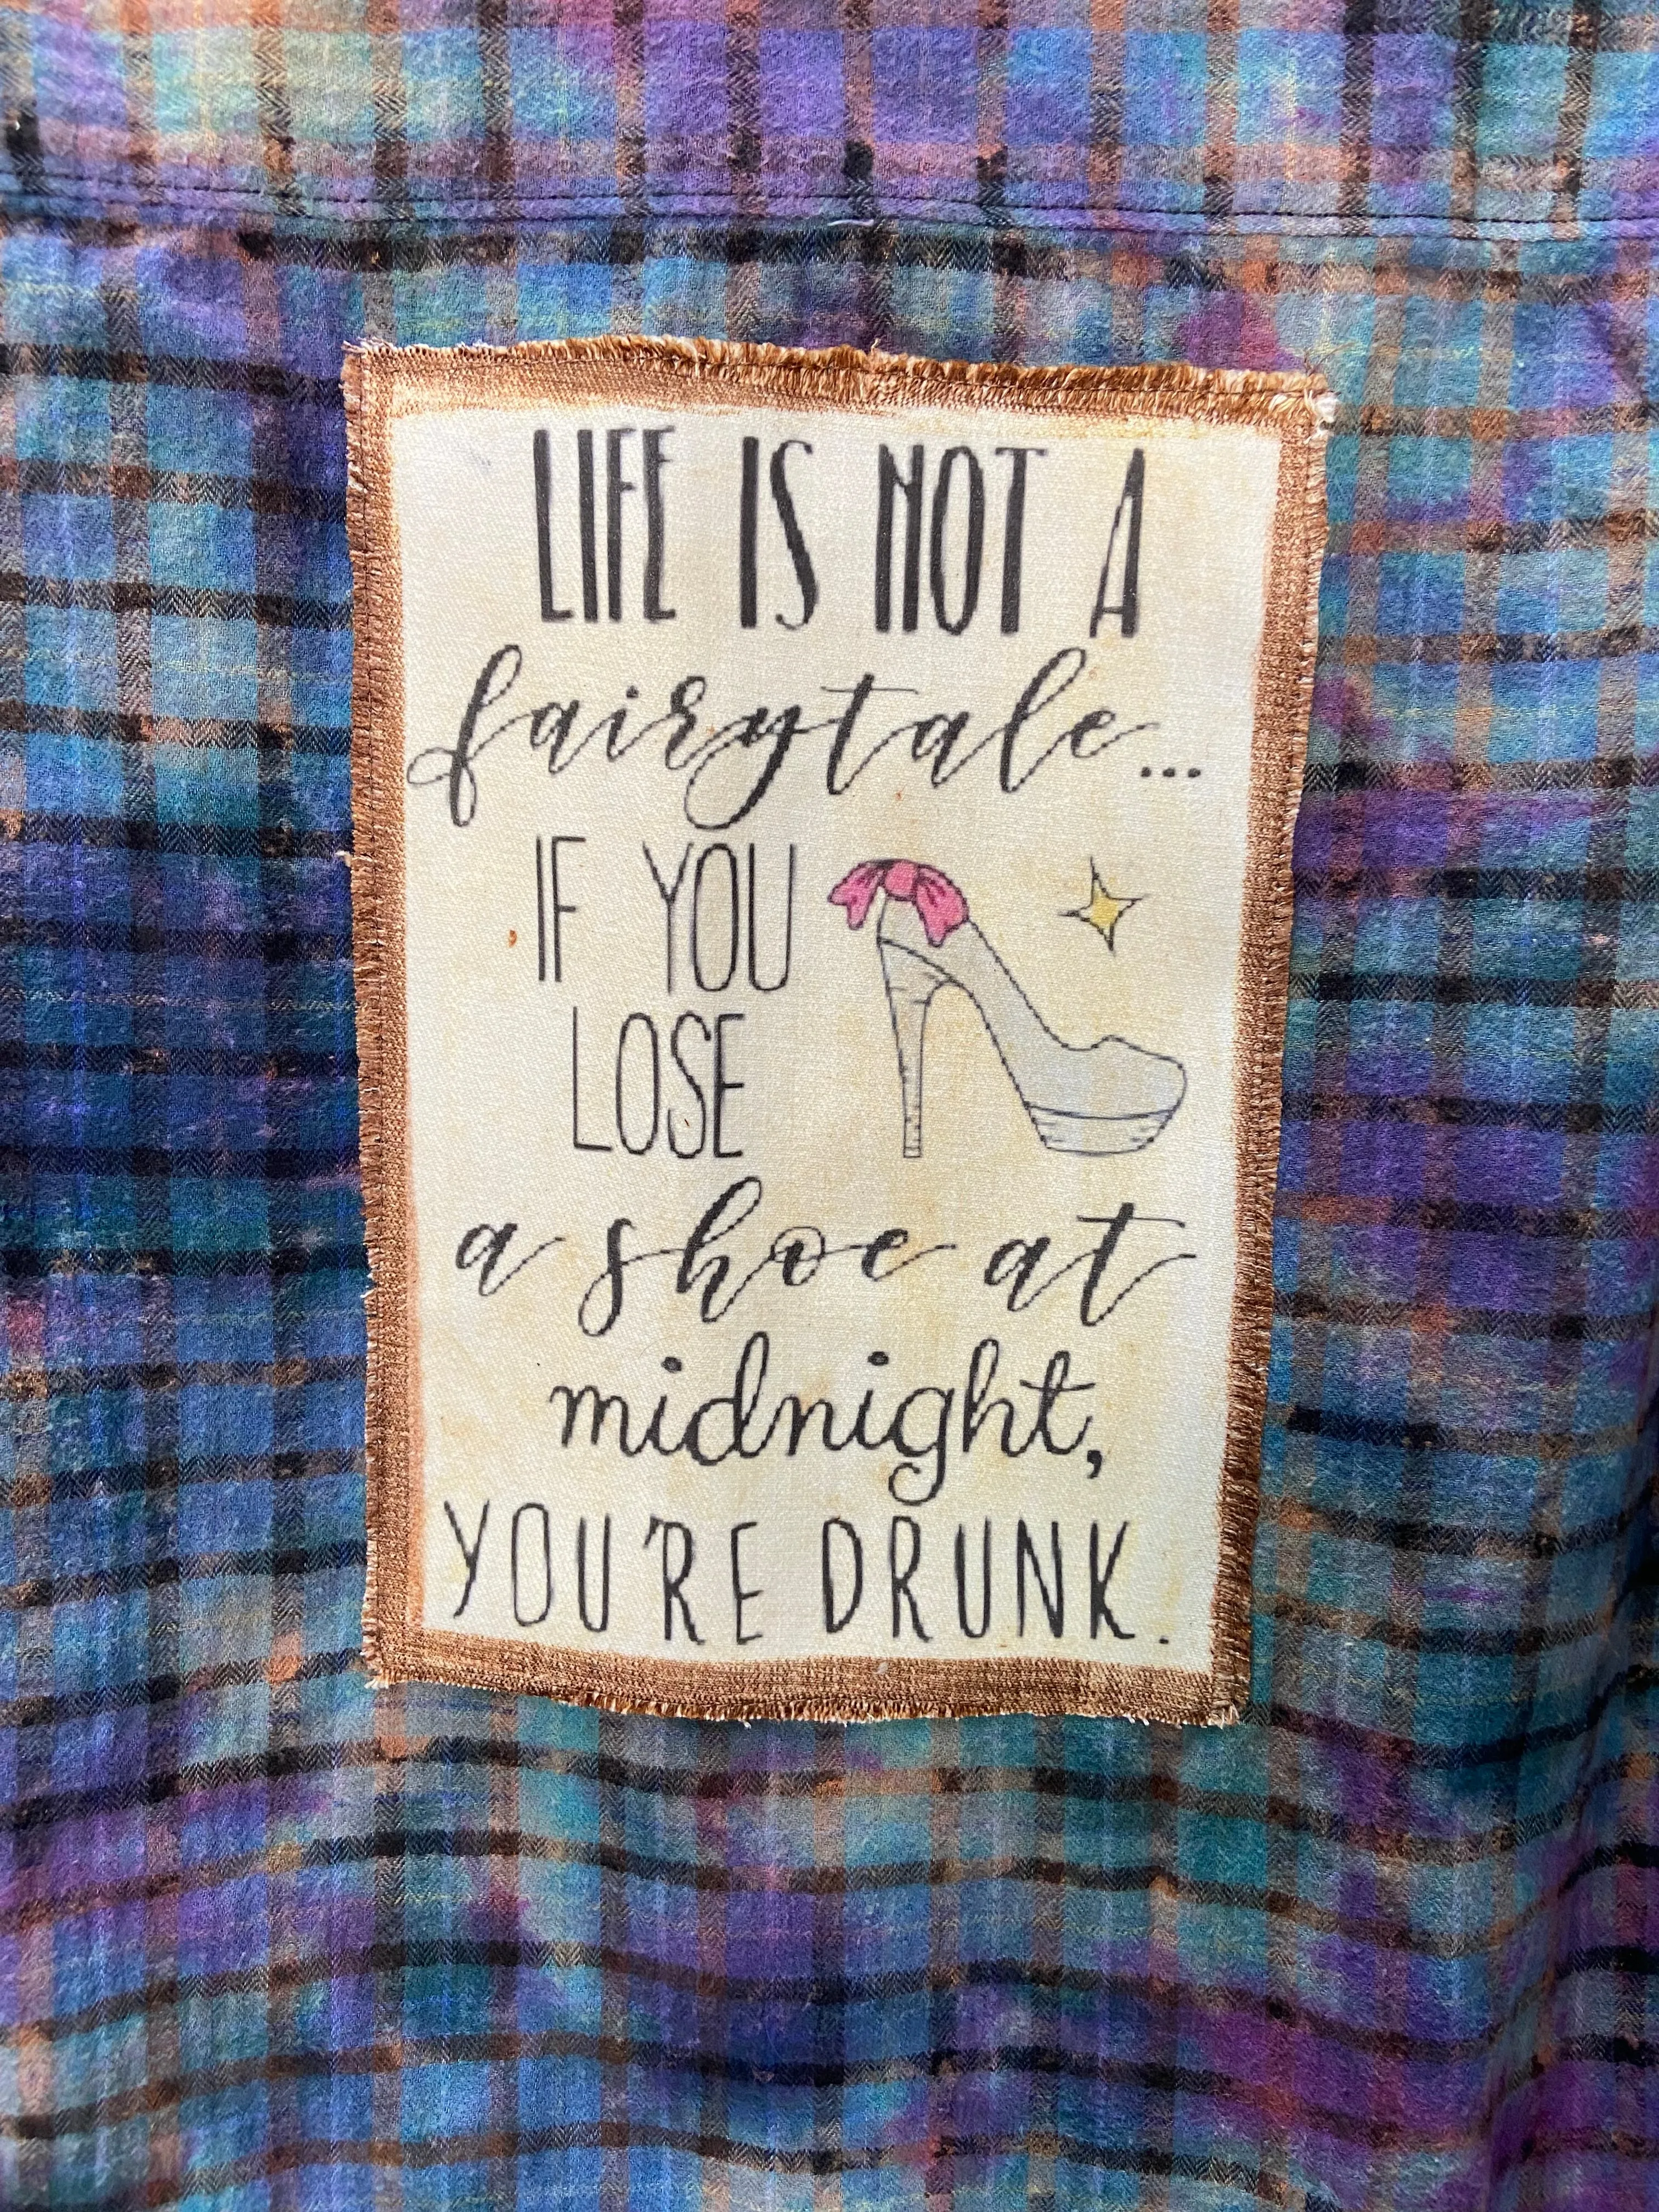 LIFE IS NOT A
fairytale...
IF YOU
LOSE
a shoe at
midnight,
YOU'RE DRUNK.